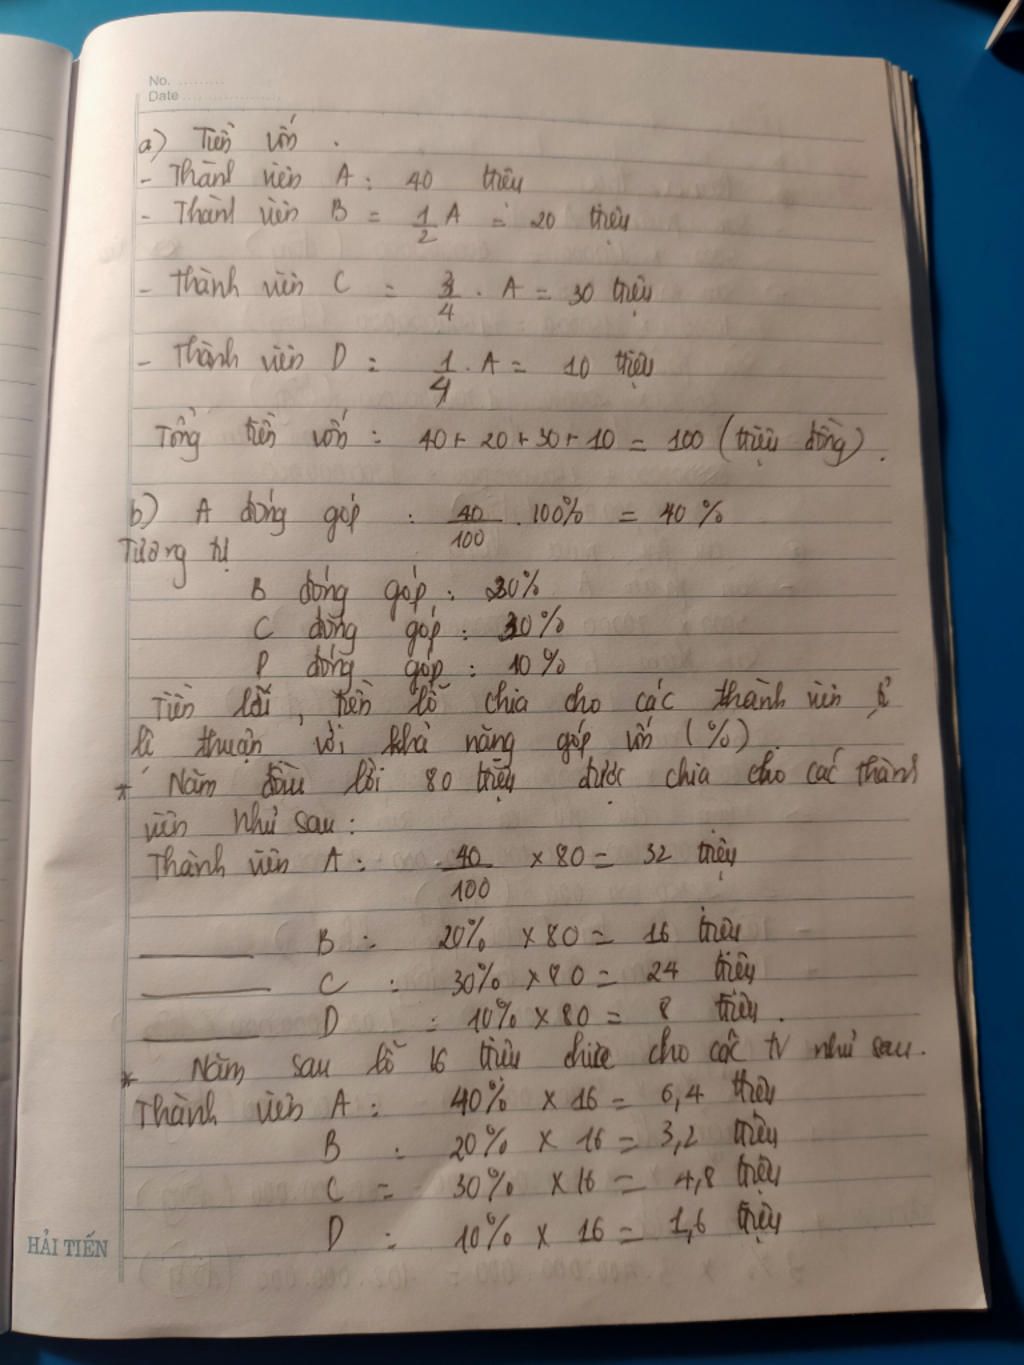 No. ..........
Date ....................
a) Tiền vốn .
- Thành viên A : 40 triệu
- Thành viên B = 1/2 A = 20 triệu
- Thành viên C = 3/4 . A = 30 triệu
- Thành viên D = 1/4 . A = 10 triệu
Tổng tiền vốn : 40 + 20 + 30 + 10 = 100 (triệu đồng) .
b) A đóng góp : 40/100 . 100% = 40 %
Tương tự
B đóng góp : 20%
C đóng góp : 30%
D đóng góp : 10%
Tiền lãi , tiền lỗ chia cho các thành viên tỉ
lệ thuận với khả năng góp vốn (%) .
* Năm đầu lời 80 triệu được chia cho các thành
viên như sau :
Thành viên A : 40/100 × 80 = 32 triệu
B : 20% × 80 = 16 triệu
C : 30% × 80 = 24 triệu
D : 10% × 80 = 8 triệu .
* Năm sau lỗ 16 triệu chia cho các tv như sau .
Thành viên A : 40% × 16 = 6,4 triệu
B : 20% × 16 = 3,2 triệu
C = 30% × 16 = 4,8 triệu
D : 10% × 16 = 1,6 triệu
HẢI TIẾN